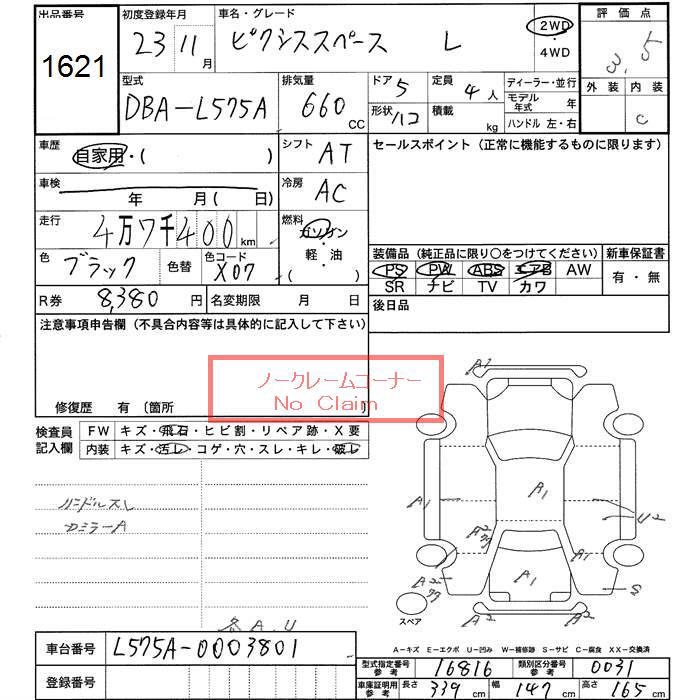 出品番号 初度登録年月 車名・グレード 評価点
1621 23 11月 ピクシススペース L 2WD ・ 4WD 3.5
型式 排気量 ドア 5 定員 4人 ディーラー・並行 外装 内装
DBA-L575A 660 CC 形状 ハコ 積載 kg モデル年式 年 C
ハンドル 左・右
車歴 自家用・( ) シフト AT セールスポイント (正常に機能するものに限ります)
車検 年 月( 日) 冷房 AC
走行 4万7千400 km 燃料 ガソリン・軽・油 ( )
色 ブラック 色替 色コード X07
装備品 (純正品に限り○をつけてください) 新車保証書
PS PW ABS エアB AW 有・無
SR ナビ TV カワ
R券 8,380 円 名変期限 月 日 後日品
注意事項申告欄 (不具合内容等は具体的に記入して下さい)
ノークレームコーナー
No Claim
修復歴 有 (箇所 )
検査員記入欄 FW キズ・飛石・ヒビ割・リペア跡・X要
内装 キズ・汚レ・コゲ・穴・スレ・キレ・破レ
ハンドルスレ
カミラーA
各A.U
A1
A1
A1
U2
A2
A1
A1
S
A2
A2
A2
スペア
A-キズ E-エクボ U-凹み W-補修跡 S-サビ C-腐食 XX-交換済
車台番号 L575A-0003801
登録番号
型式指定番号 参考 16816 類別区分番号 参考 0031
車庫証明用 参考 長さ 339 cm 幅 147 cm 高さ 165 cm